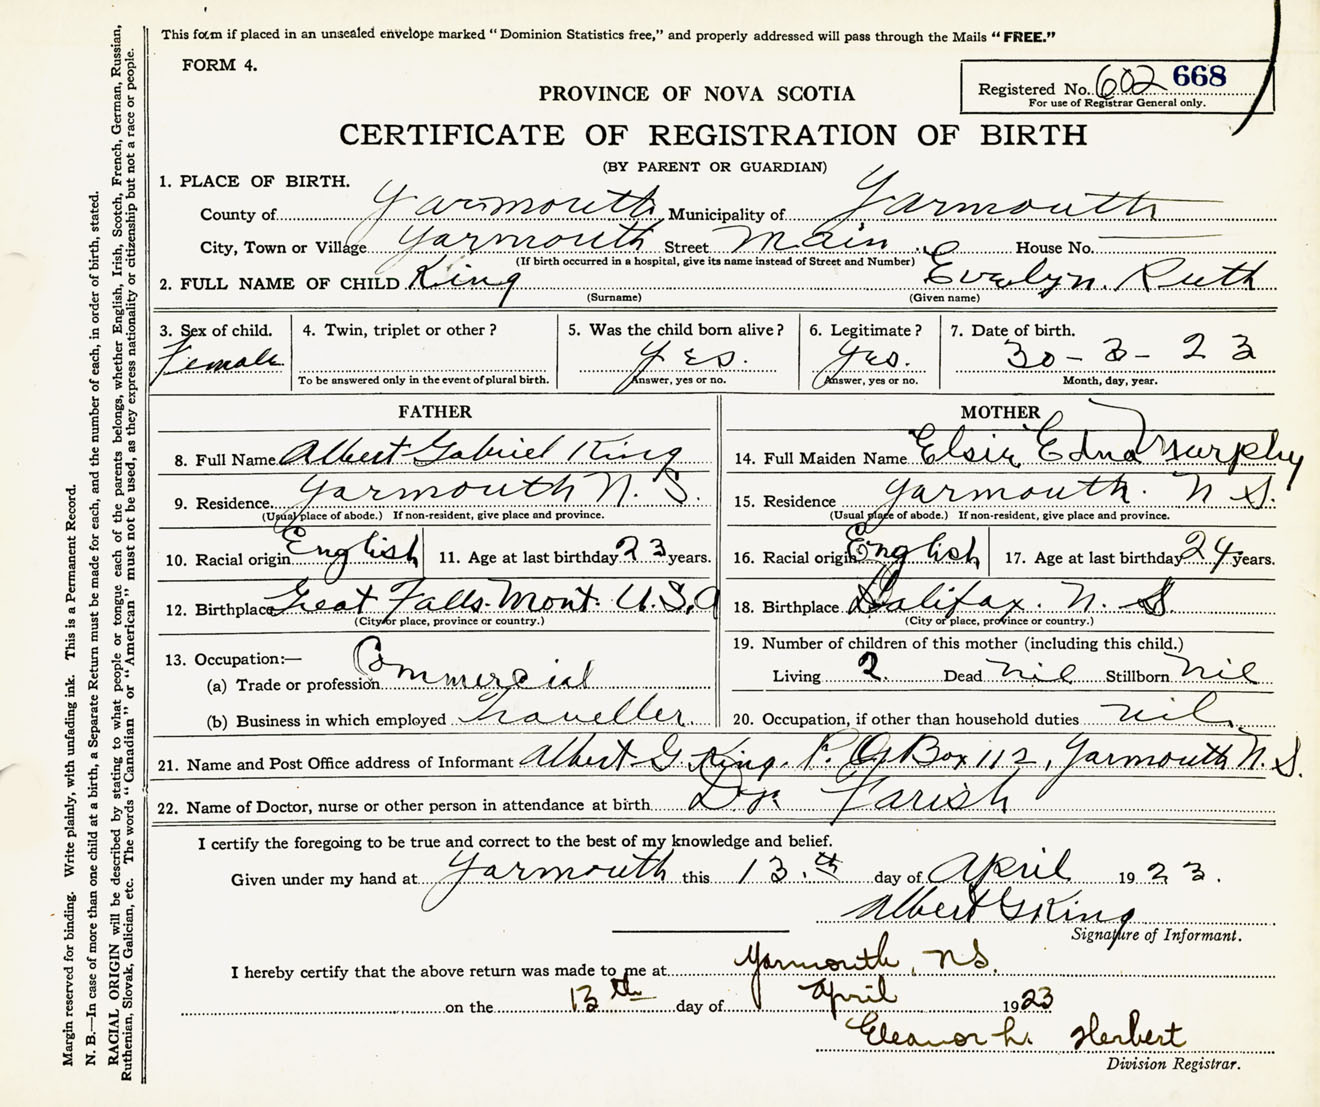 This form if placed in an unsealed envelope marked "Dominion Statistics free," and properly addressed will pass through the Mails "FREE."
FORM 4.
Registered No. 602 668
For use of Registrar General only.
PROVINCE OF NOVA SCOTIA
CERTIFICATE OF REGISTRATION OF BIRTH
(BY PARENT OR GUARDIAN)
1. PLACE OF BIRTH.
County of Yarmouth Municipality of Yarmouth
City, Town or Village Yarmouth Street Main House No.
(If birth occurred in a hospital, give its name instead of Street and Number)
2. FULL NAME OF CHILD King Evelyn. Ruth
(Surname) (Given name)
3. Sex of child. 4. Twin, triplet or other? 5. Was the child born alive? 6. Legitimate? 7. Date of birth.
Female Yes. Yes. 30-3-23
To be answered only in the event of plural birth. Answer, yes or no. Answer, yes or no. Month, day, year.
FATHER
8. Full Name Albert Gabriel King
9. Residence Yarmouth N. S.
(Usual place of abode.) If non-resident, give place and province.
10. Racial origin English 11. Age at last birthday 23 years.
12. Birthplace Great Falls. Mont. U.S.A
(City or place, province or country.)
13. Occupation:—
(a) Trade or profession Commercial
(b) Business in which employed Traveller.
MOTHER
14. Full Maiden Name Elsie Edna Murphy
15. Residence Yarmouth. N S.
(Usual place of abode.) If non-resident, give place and province.
16. Racial origin English 17. Age at last birthday 24 years.
18. Birthplace Halifax. N. S
(City or place, province or country.)
19. Number of children of this mother (including this child.)
Living 2. Dead Nil Stillborn Nil
20. Occupation, if other than household duties nil.
21. Name and Post Office address of Informant Albert G. King. P. O. Box 112, Yarmouth N. S.
22. Name of Doctor, nurse or other person in attendance at birth Dr. Farish
I certify the foregoing to be true and correct to the best of my knowledge and belief.
Given under my hand at Yarmouth this 13.th day of April 1923.
Albert G King
Signature of Informant.
I hereby certify that the above return was made to me at Yarmouth, N.S.
on the 13th day of April 1923
Eleanor L. Herbert
Division Registrar.
Margin reserved for binding. Write plainly, with unfading ink. This is a Permanent Record.
N. B.—In case of more than one child at a birth, a Separate Return must be made for each, and the number of each, in order of birth, stated.
RACIAL ORIGIN will be described by stating to what people or tongue each of the parents belongs, whether English, Irish, Scotch, French, German, Russian,
Ruthenian, Slovak, Galician, etc. The words "Canadian" or "American" must not be used, as they express nationality or citizenship but not a race or people.